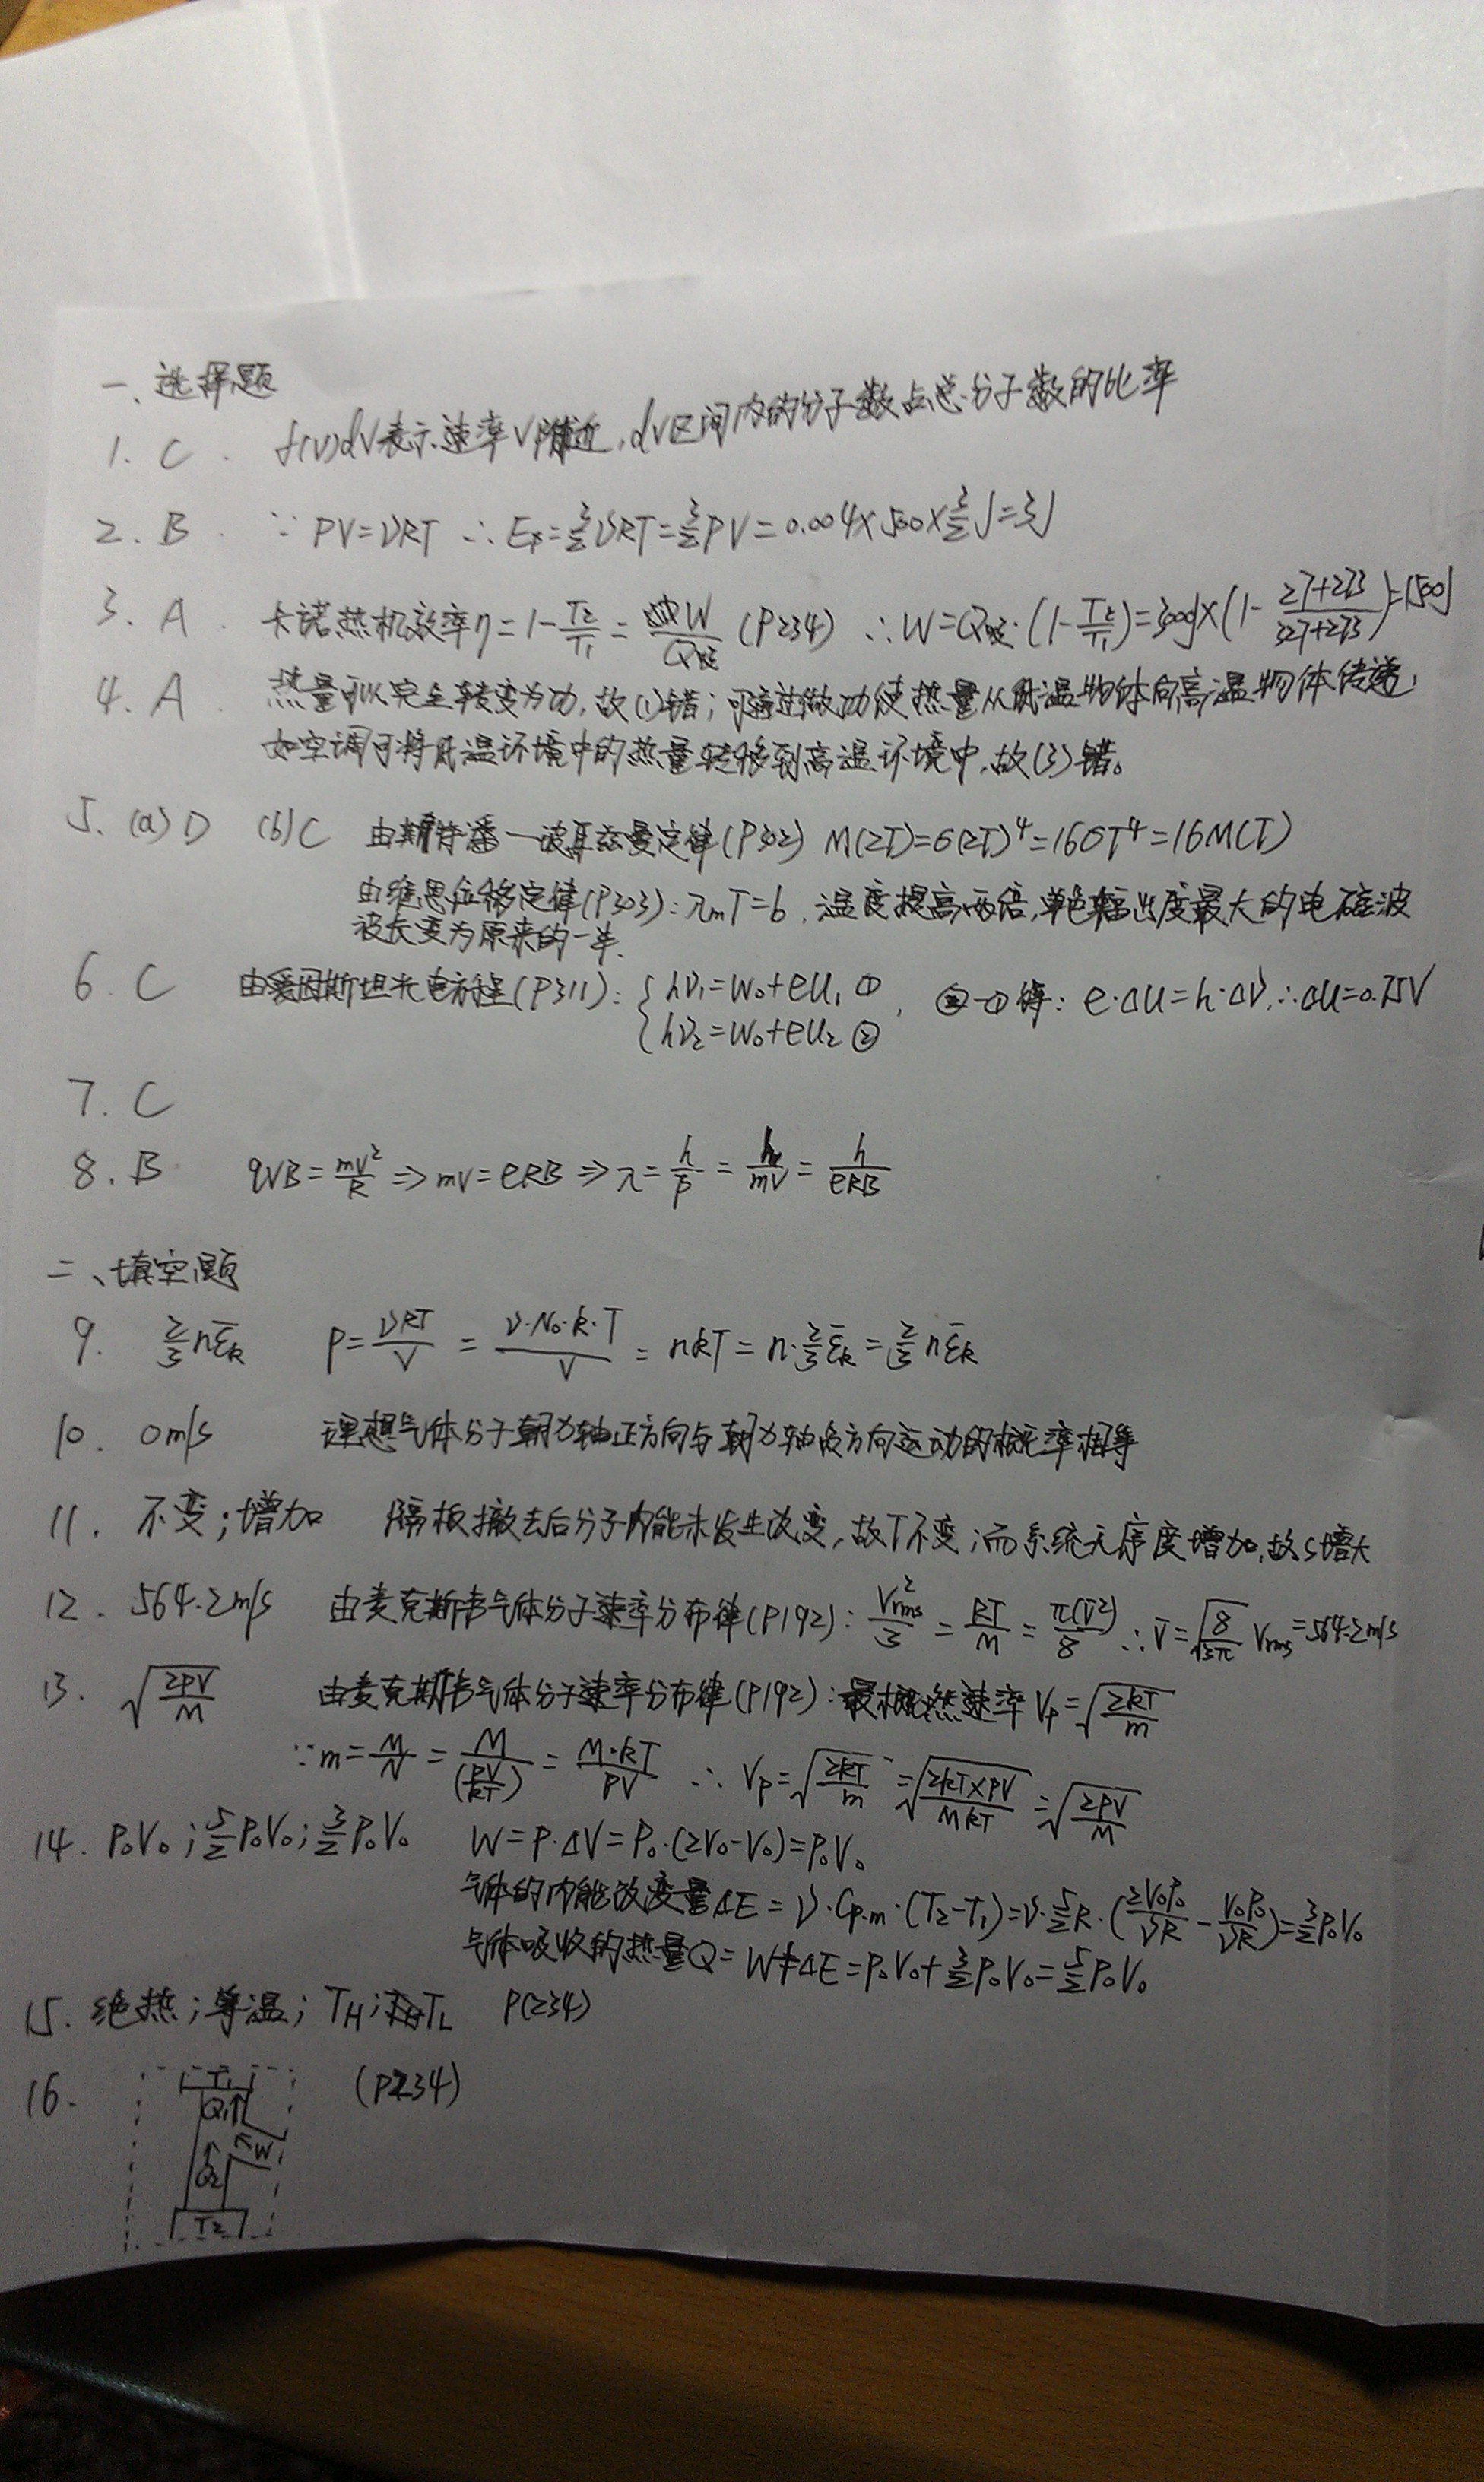 一、选择题
1. C. f(v)dv表示速率v附近,dv区间内的分子数占总分子数的比率
2. B. ∵ PV=νRT ∴ Ek=3/2νRT=3/2PV=0.004×500×3/2J=3J
3. A. 卡诺热机效率η=1-T2/T1=W/Q吸 (P234) ∴W=Q吸·(1-T2/T1)=300J×(1-(27+273)/(327+273))=150J
4. A. 热量可以完全转变为功,故(1)错;可通过做功使热量从低温物体向高温物体传递,
如空调可将低温环境中的热量转移到高温环境中,故(3)错。
5. (a)D (b)C 由斯特潘一波耳兹曼定律(P302) M(2T)=σ(2T)^4=16σT^4=16M(T)
由维恩位移定律(P303):λmT=b,温度提高两倍,单色辐出度最大的电磁波
波长变为原来的一半.
6. C 由爱因斯坦光电方程(P311): { hν1=W0+eU1 ① , ②-①得: e·ΔU=h·Δν,∴ΔU=0.75V
hν2=W0+eU2 ②
7. C
8. B qvB=mv²/R ⇒ mv=eRB ⇒ λ=h/p=h/mv=h/eRB
二、填空题
9. 2/3nε̄k P=νRT/V=ν·N0·k·T/V=nkT=n·2/3ε̄k=2/3nε̄k
10. 0m/s 理想气体分子朝x轴正方向与朝x轴反方向运动的概率相等
11. 不变;增加 隔板撤去后分子内能未发生改变,故T不变;而系统无序度增加,故S增大
12. 564.2m/s 由麦克斯韦气体分子速率分布律(P192): Vrms²/3=RT/M=π(v̄²)/8 ∴v̄=√(8/3π) Vrms=564.2m/s
13. √(2PV/M) 由麦克斯韦气体分子速率分布律(P192):最概然速率Vp=√(2kT/m)
∵m=M/N=M/(PV/kT)=M·kT/PV ∴ Vp=√(2kT/m)=√(2kT×PV/MkT)=√(2PV/M)
14. P0V0;5/2P0V0;3/2P0V0 W=P·ΔV=P0·(2V0-V0)=P0V0
气体的内能改变量ΔE=ν·Cp.m·(T2-T1)=ν·5/2R·(2V0P0/νR-V0P0/νR)=3/2P0V0
气体吸收的热量Q=W+ΔE=P0V0+3/2P0V0=5/2P0V0
15. 绝热;等温;TH;TL P(234)
16. (P234)
T1
Q1
W
Q2
T2